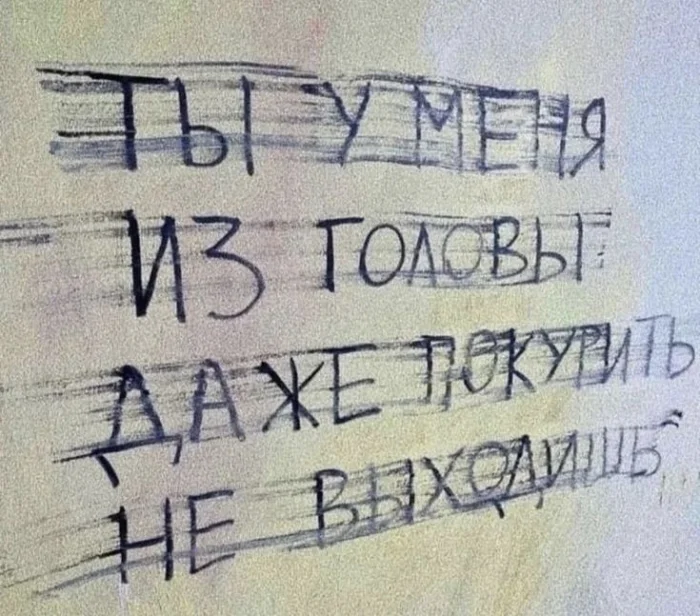 ТЫ У МЕНЯ
ИЗ ГОЛОВЫ
ДАЖЕ ПОКУРИТЬ
НЕ ВЫХОДИШЬ